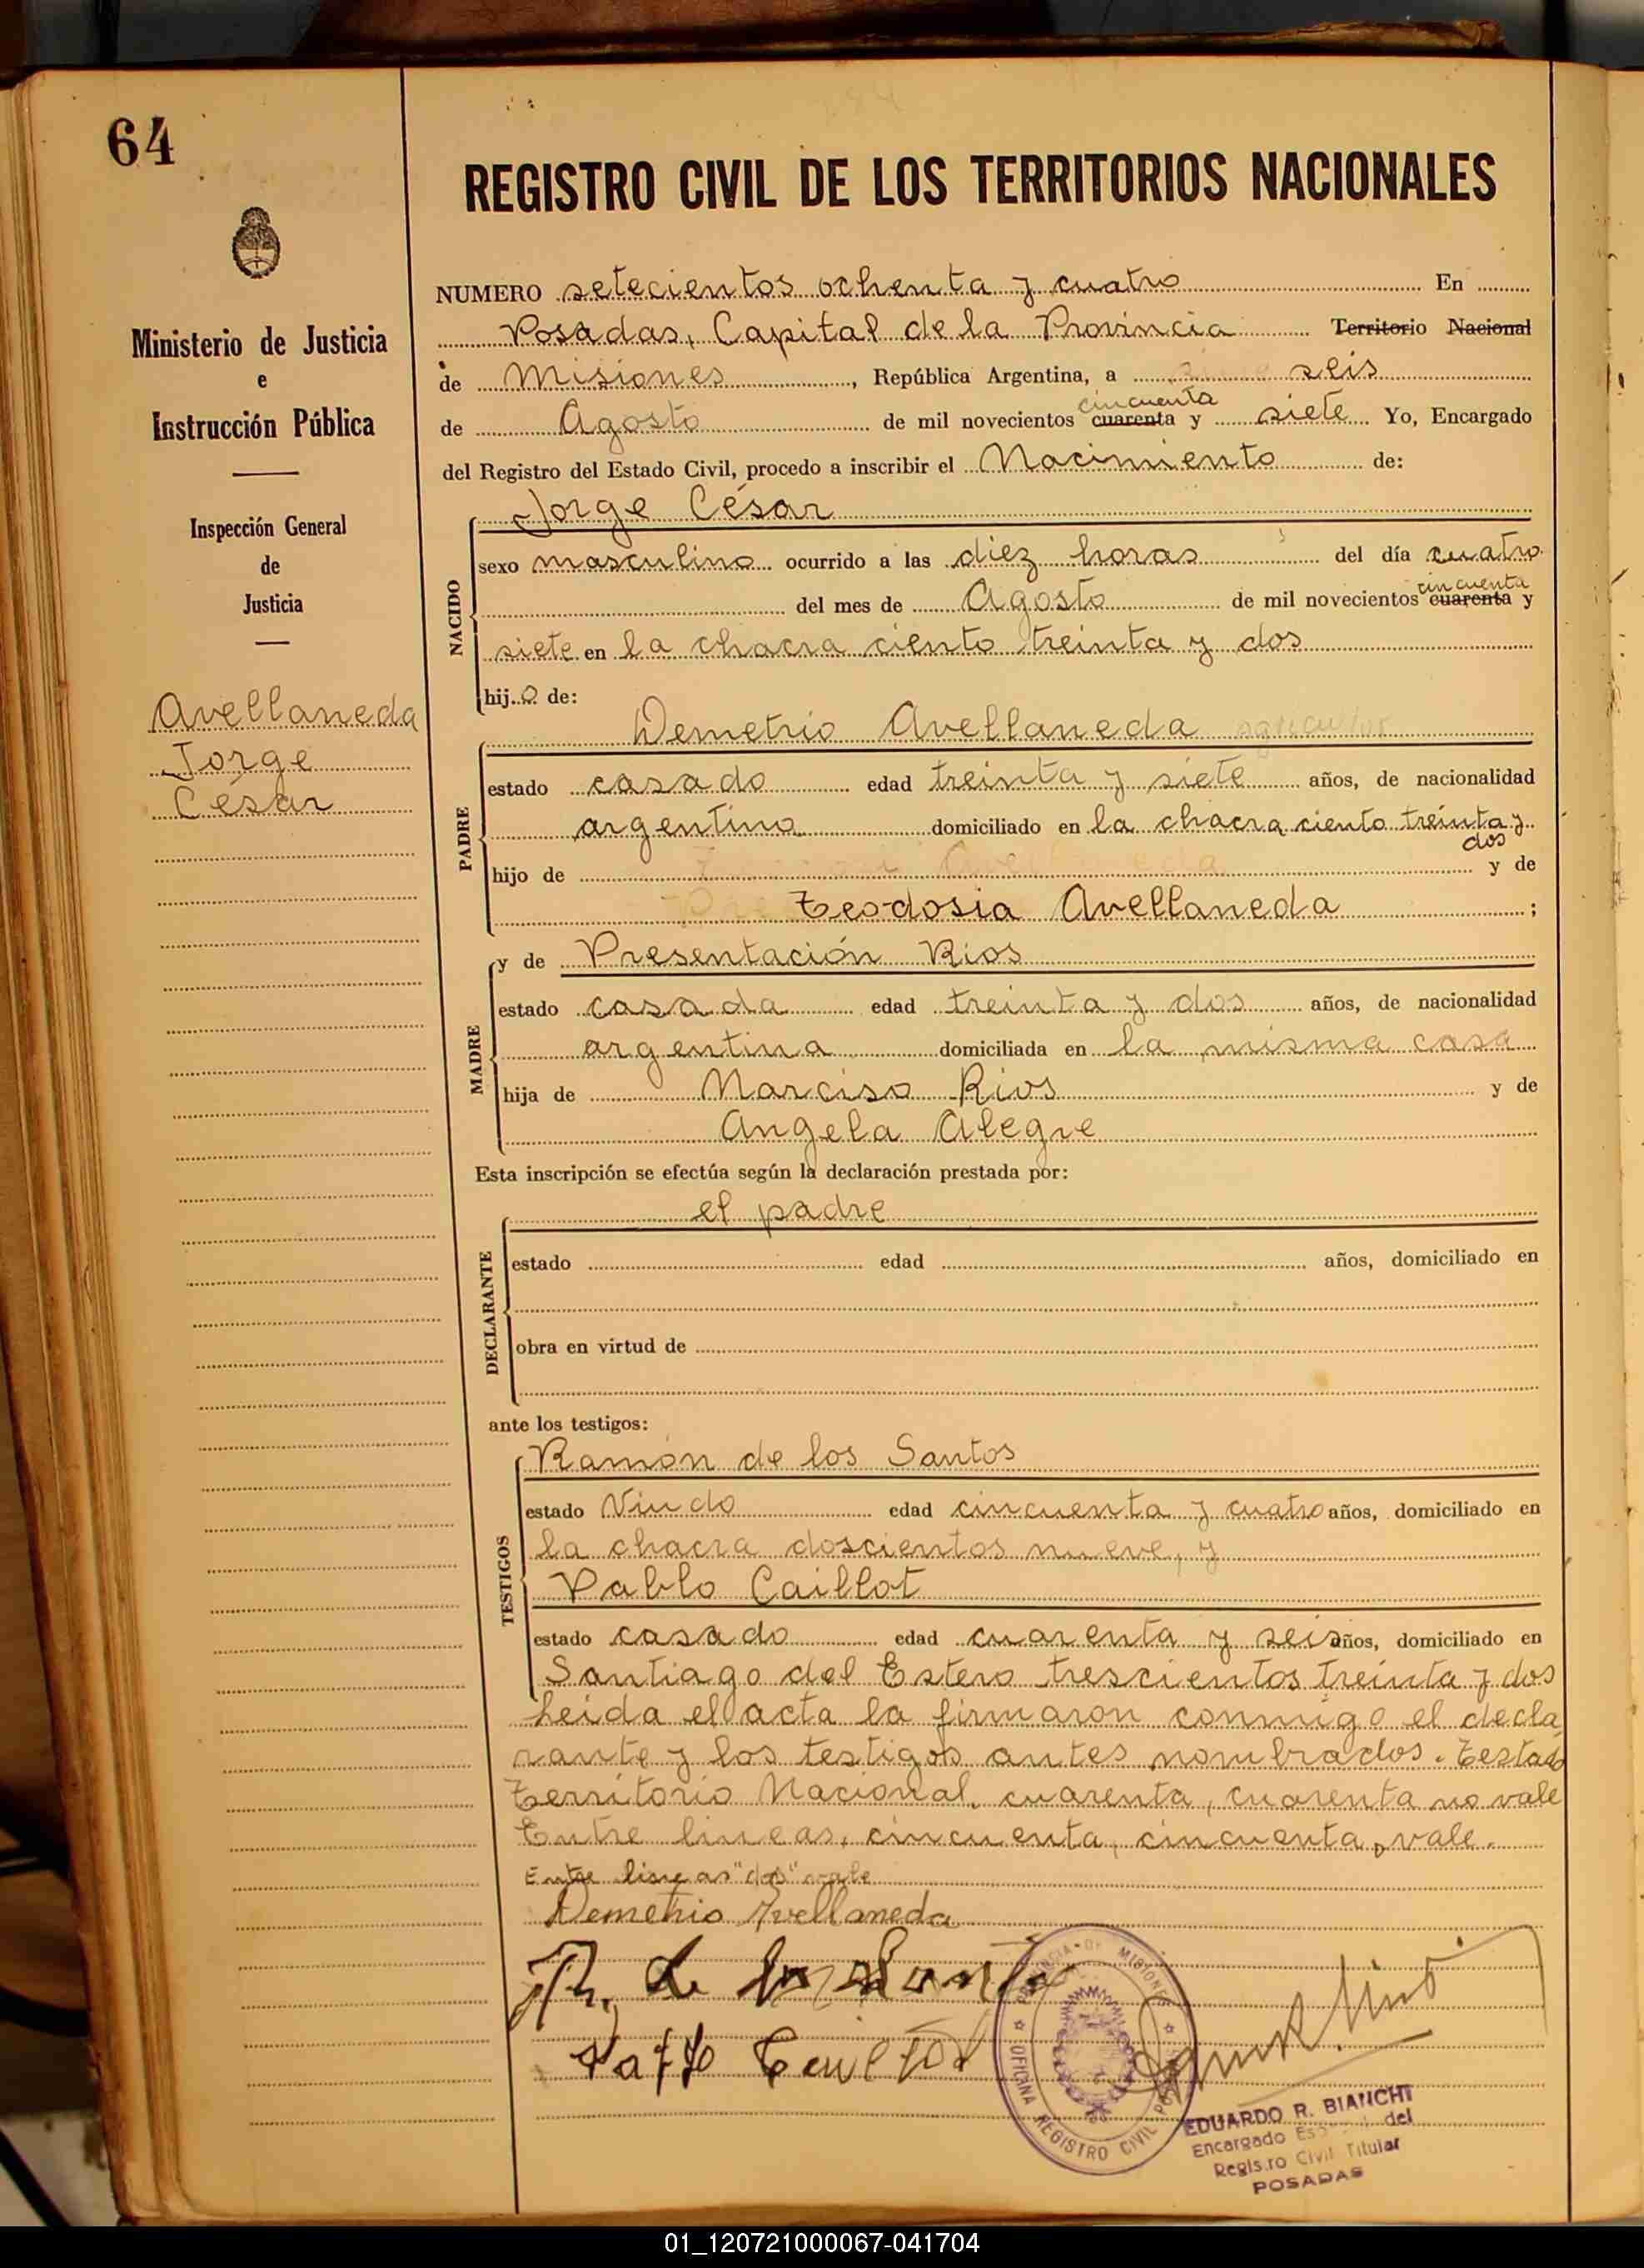 64
REGISTRO CIVIL DE LOS TERRITORIOS NACIONALES
Ministerio de Justicia
e
Instrucción Pública
Inspección General
de
Justicia
Avellaneda
Jorge
César
NUMERO setecientos ochenta y cuatro En
Posadas, Capital de la Provincia Territorio Nacional
de Misiones, República Argentina, a seis
cincuenta
de Agosto de mil novecientos cuarenta y siete Yo, Encargado
del Registro del Estado Civil, procedo a inscribir el Nacimiento de:
NACIDO
Jorge César
sexo masculino ocurrido a las diez horas del día cuatro
cincuenta
del mes de Agosto de mil novecientos cuarenta y
siete en la chacra ciento treinta y dos
hijo de:
PADRE
Demetrio Avellaneda agricultor
estado casado edad treinta y siete años, de nacionalidad
argentino domiciliado en la chacra ciento treinta y
dos
hijo de y de
Teodosia Avellaneda;
MADRE
y de Presentación Rios
estado casada edad treinta y dos años, de nacionalidad
argentina domiciliada en la misma casa
hija de Narciso Rios y de
Angela Alegre
Esta inscripción se efectúa según la declaración prestada por:
DECLARANTE
el padre
estado edad años, domiciliado en
obra en virtud de
ante los testigos:
TESTIGOS
Ramón de los Santos
estado Viudo edad cincuenta y cuatro años, domiciliado en
la chacra doscientos nueve, y
Pablo Caillot
estado casado edad cuarenta y seis años, domiciliado en
Santiago del Estero trescientos treinta y dos
Leida el acta la firmaron conmigo el decla
rante y los testigos antes nombrados. Testado
Territorio Nacional, cuarenta, cuarenta no vale
Entre lineas, cincuenta, cincuenta, vale.
Entre lineas "dos" vale
Demetrio Avellaneda
R. de los Santos
Pablo Caillot
PROVINCIA DE MISIONES
OFICINA REGISTRO CIVIL POSADAS
EDUARDO R. BIANCHI
Encargado del
Registro Civil Titular
POSADAS
01_120721000067-041704